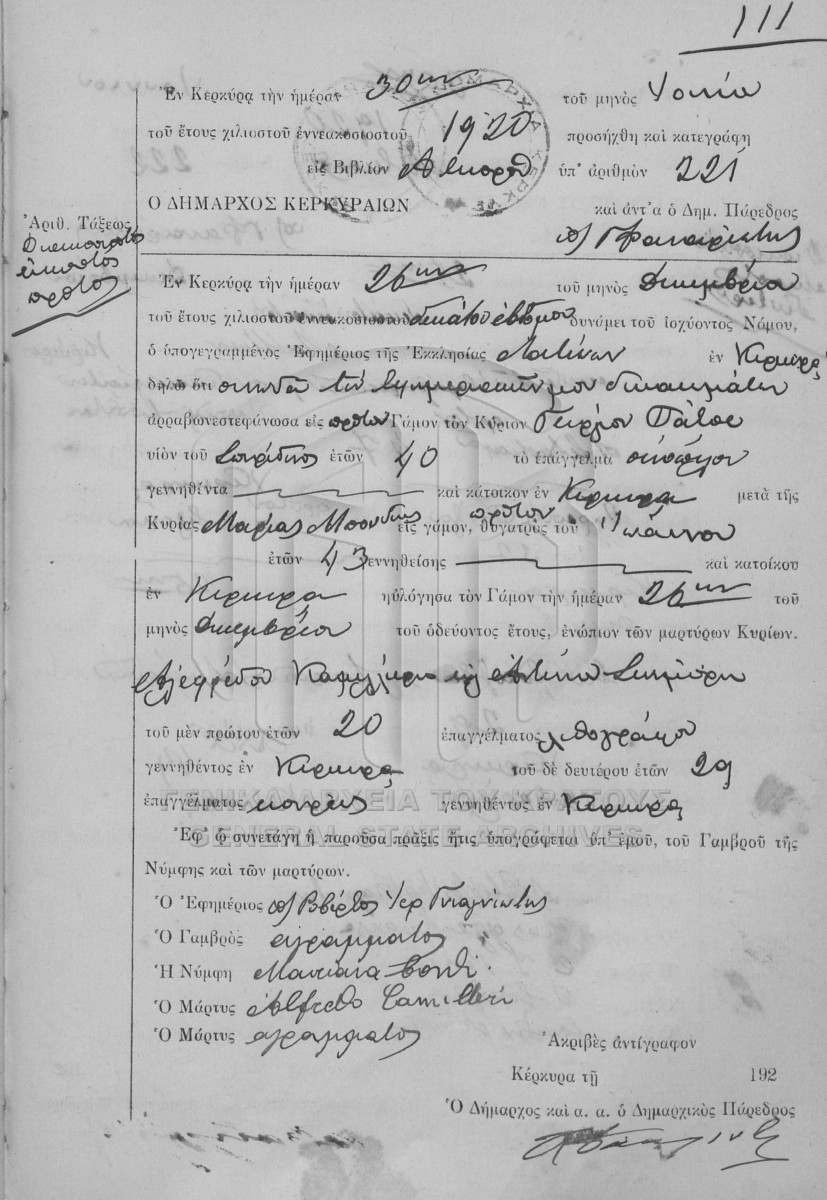 111
Ἐν Κερκύρᾳ τὴν ἡμέραν 30ην τοῦ μηνὸς
τοῦ ἔτους χιλιοστοῦ ἐννεακοσιοστοῦ 1920 προσήχθη καὶ κατεγράφη
εἰς Βιβλίον ὑπ' ἀριθμὸν 221
Ο ΔΗΜΑΡΧΟΣ ΚΕΡΚΥΡΑΙΩΝ καὶ ἀντ'α ὁ Δημ. Πάρεδρος
Ἀριθ. Τάξεως
Διακοσιοστὸς
εἰκοστὸς
πρῶτος
Ἐν Κερκύρᾳ τὴν ἡμέραν 26ην τοῦ μηνὸς Δεκεμβρίου
τοῦ ἔτους χιλιοστοῦ ἐννεακοσιοστοῦ δεκάτου ἑβδόμου δυνάμει τοῦ ἰσχύοντος Νόμου,
ὁ ὑπογεγραμμένος Ἐφημέριος τῆς Ἐκκλησίας Λατίνων ἐν Κέρκυρᾳ
δηλῶ ὅτι
ἀρραβωνεστεφάνωσα εἰς πρῶτον Γάμον τὸν Κύριον Γεώργιον
υἱὸν τοῦ Σπυρίδωνος ἐτῶν 40 τὸ ἐπάγγελμα
γεννηθέντα καὶ κάτοικον ἐν Κέρκυρα μετὰ τῆς
Κυρίας εἰς πρῶτον γάμον, θυγατρὸς τοῦ Ἰωάννου
ἐτῶν 43 γεννηθείσης καὶ κατοίκου
ἐν Κέρκυρα ηὐλόγησα τὸν Γάμον τὴν ἡμέραν 26ην τοῦ
μηνὸς Δεκεμβρίου τοῦ ὁδεύοντος ἔτους, ἐνώπιον τῶν μαρτύρων Κυρίων.
τοῦ μὲν πρώτου ἐτῶν 20 ἐπαγγέλματος λιθογράφου
γεννηθέντος ἐν Κέρκυρα τοῦ δὲ δευτέρου ἐτῶν 29
ἐπαγγέλματος κουρέως γεννηθέντος ἐν Κέρκυρα
ΓΕΝΙΚΑ ΑΡΧΕΙΑ ΤΟΥ ΚΡΑΤΟΥΣ
GENERAL STATE ARCHIVES
Ἐφ' ᾧ συνετάγη ἡ παροῦσα πρᾶξις ἥτις ὑπογράφεται ὑπ' ἐμοῦ, τοῦ Γαμβροῦ τῆς
Νύμφης καὶ τῶν μαρτύρων.
Ὁ Ἐφημέριος
Ὁ Γαμβρὸς αγραμματος
Ἡ Νύμφη
Ὁ Μάρτυς Alfredo Camilleri
Ὁ Μάρτυς αγραμματος
Ἀκριβὲς ἀντίγραφον
Κέρκυρα τῇ 192
Ὁ Δήμαρχος καὶ α. α. ὁ Δημαρχικὸς Πάρεδρος